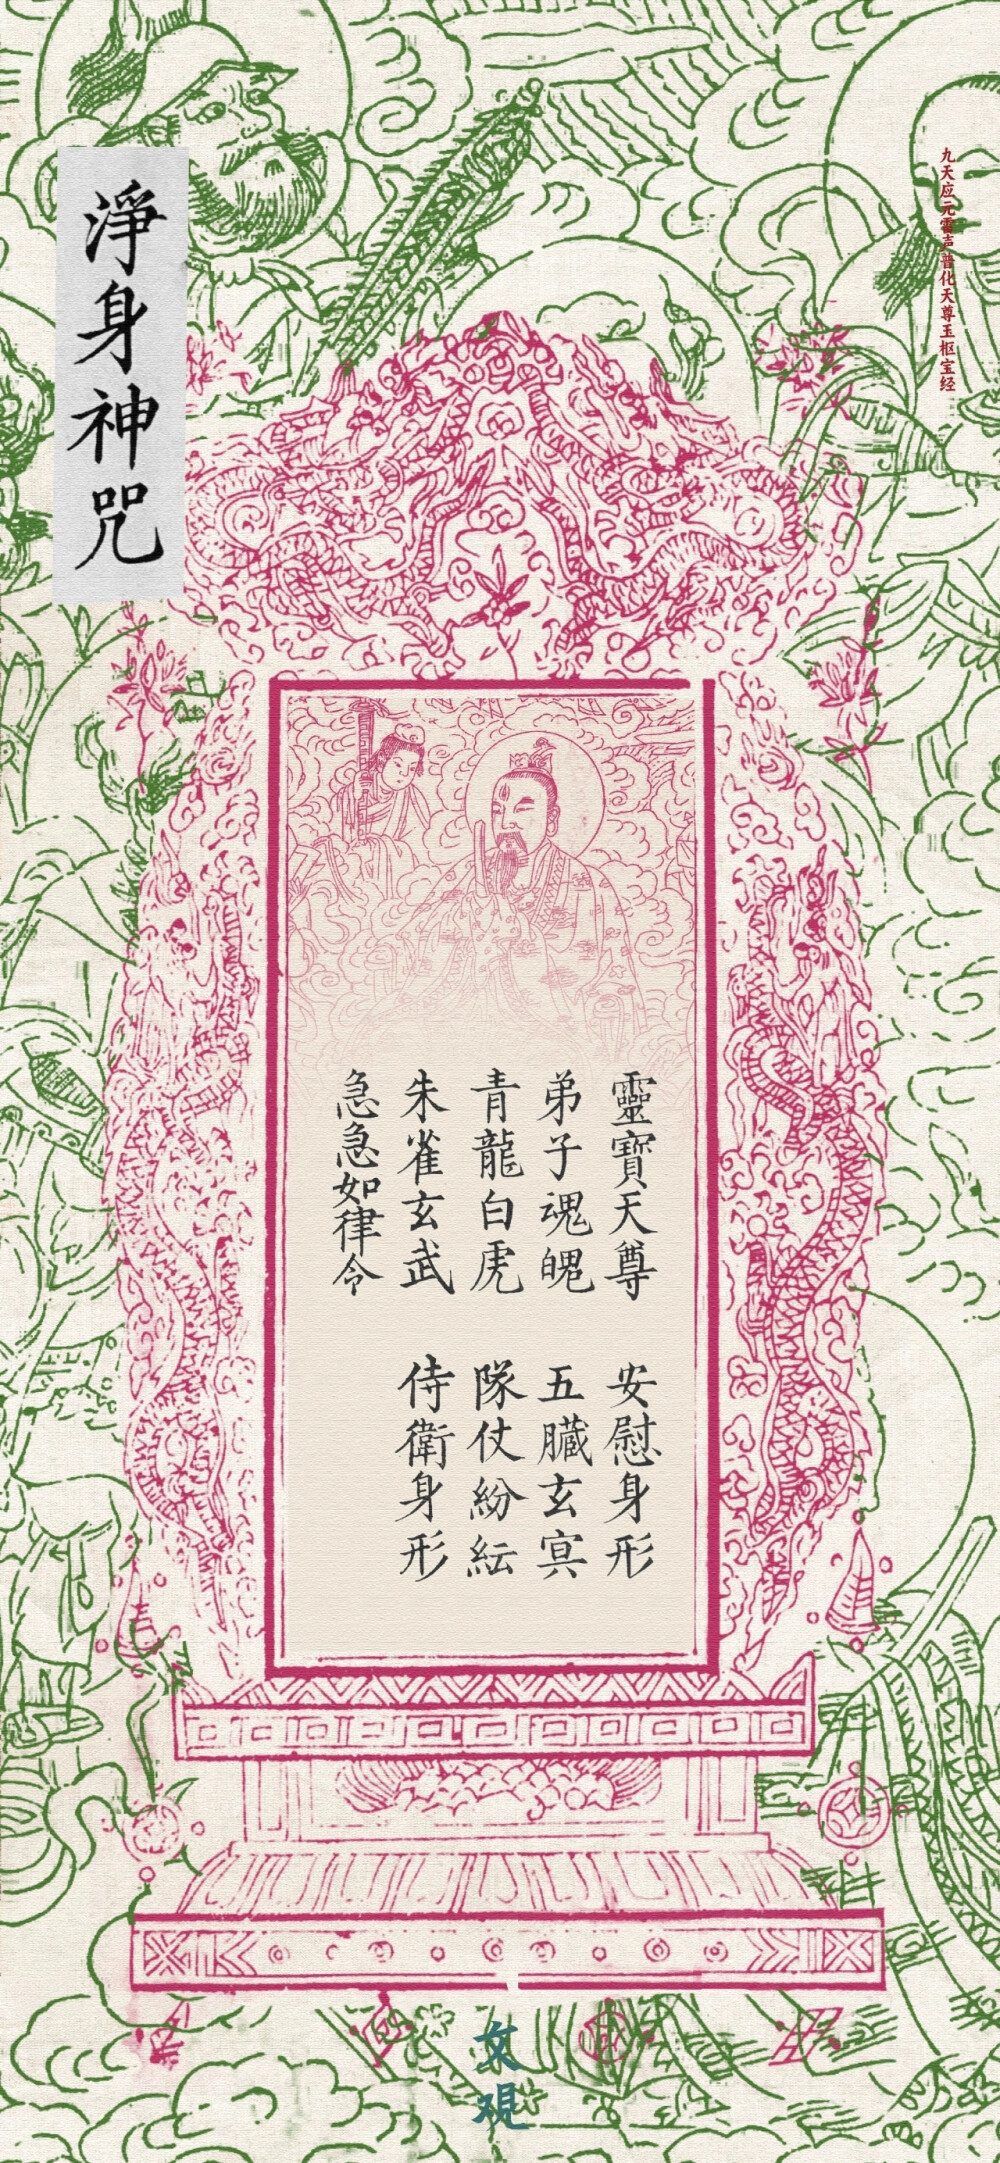 淨身神咒
九天应元雷声普化天尊玉枢宝经
靈寶天尊 安慰身形
弟子魂魄 五臟玄冥
青龍白虎 隊仗紛紜
朱雀玄武 侍衛身形
急急如律令
文观